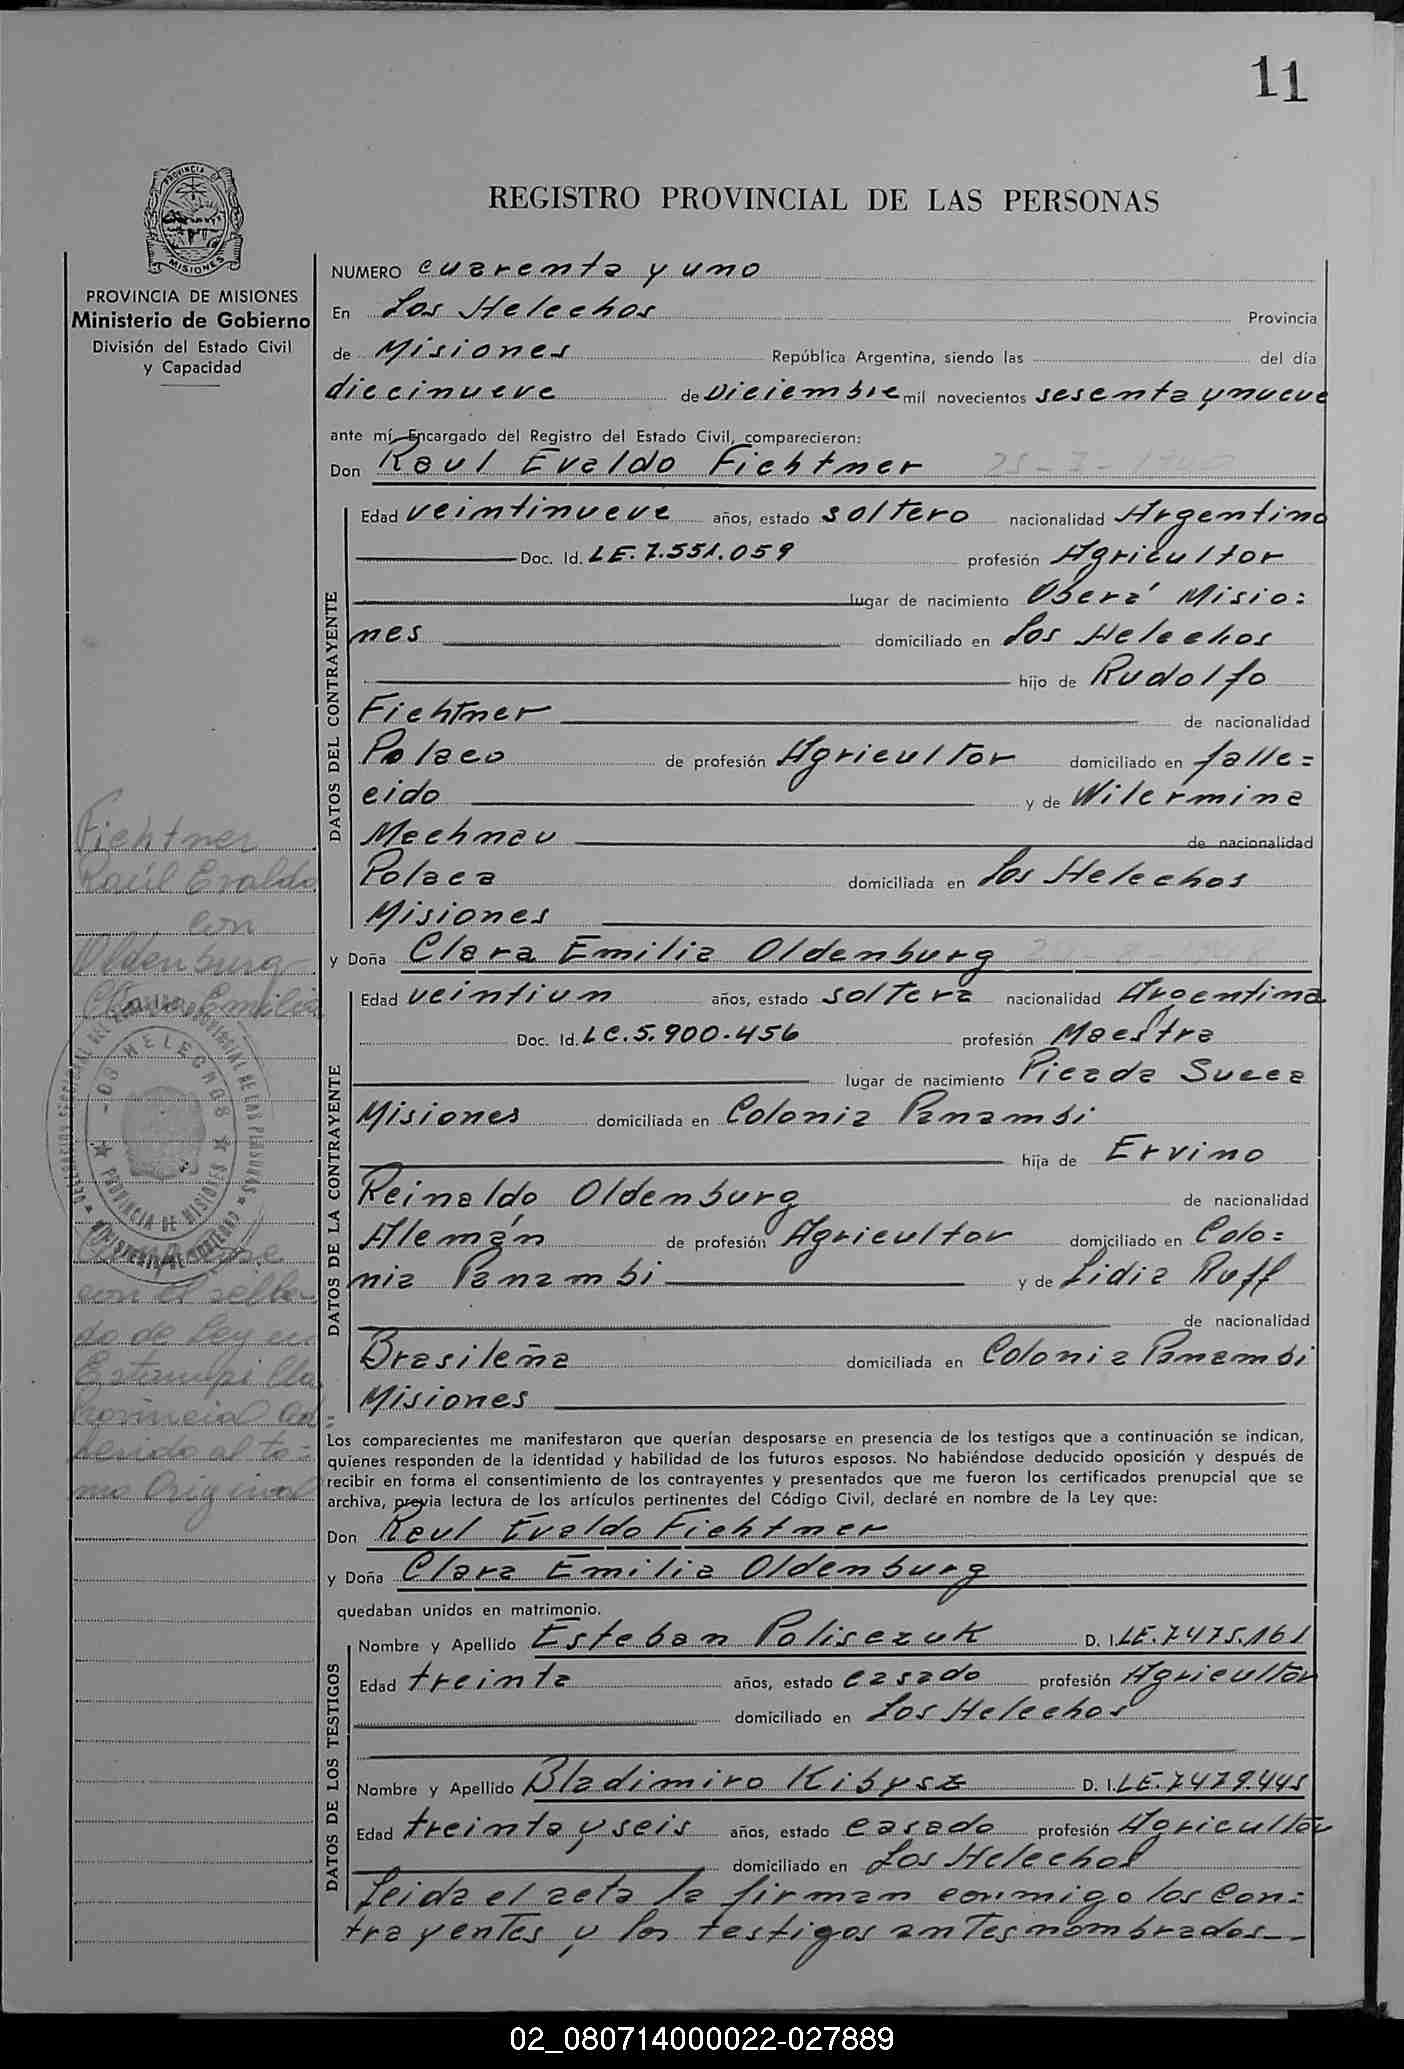 11
PROVINCIA DE
MISIONES
REGISTRO PROVINCIAL DE LAS PERSONAS
PROVINCIA DE MISIONES
Ministerio de Gobierno
División del Estado Civil
y Capacidad
NUMERO cuarenta y uno
En Los Helechos Provincia
de Misiones República Argentina, siendo las del día
diecinueve de Diciembre mil novecientos sesenta y nueve
ante mí, Encargado del Registro del Estado Civil, comparecieron:
Don Raul Evaldo Fichtner
DATOS DEL CONTRAYENTE
Edad veintinueve años, estado soltero nacionalidad Argentina
Doc. Id. LE. 7.551.059 profesión Agricultor
lugar de nacimiento Oberá Misio=
nes domiciliado en Los Helechos
hijo de Rudolfo
Fichtner de nacionalidad
Polaco de profesión Agricultor domiciliado en falle=
cido y de Wilermina
Mechnau de nacionalidad
Polaca domiciliada en Los Helechos
Misiones
y Doña Clara Emilia Oldenburg
DATOS DE LA CONTRAYENTE
Edad veintiun años, estado soltera nacionalidad Argentina
Doc. Id. LC. 5.900.456 profesión Maestra
lugar de nacimiento Picada Sueca
Misiones domiciliada en Colonia Panambi
hija de Ervino
Reinaldo Oldenburg de nacionalidad
Alemán de profesión Agricultor domiciliado en Colo=
nia Panambi y de Lidia Ruff
de nacionalidad
Brasileña domiciliada en Colonia Panambi
Misiones
Los comparecientes me manifestaron que querían desposarse en presencia de los testigos que a continuación se indican,
quienes responden de la identidad y habilidad de los futuros esposos. No habiéndose deducido oposición y después de
recibir en forma el consentimiento de los contrayentes y presentados que me fueron los certificados prenupcial que se
archiva, previa lectura de los artículos pertinentes del Código Civil, declaré en nombre de la Ley que:
Don Raul Evaldo Fichtner
y Doña Clara Emilia Oldenburg
quedaban unidos en matrimonio.
DATOS DE LOS TESTIGOS
Nombre y Apellido Esteban Polisczuk D. I. LE. 7475.161
Edad treinta años, estado casado profesión Agricultor
domiciliado en Los Helechos
Nombre y Apellido Bladimiro Kibysz D. I. LE. 7479.445
Edad treinta y seis años, estado casado profesión Agricultor
domiciliado en Los Helechos
Leida el acta la firman conmigo los con=
trayentes y los testigos antes nombrados
Fichtner
Raúl Evaldo
con
Oldenburg
Clara Emilia
HELECHOS
PROVINCIA DE MISIONES
con el sella-
do de Ley en
Estampilla
Provincial ad=
herido al to=
mo Original
02_080714000022-027889